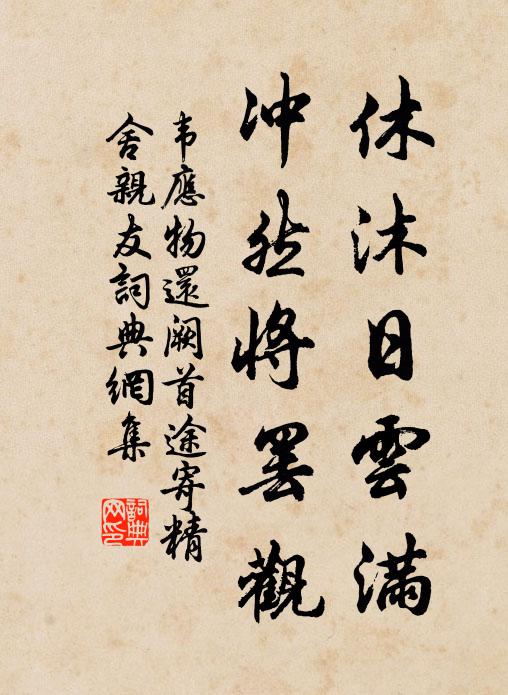 休沐日雲滿
冲然將罷觀
韦應物還阙首途寄精
舍親友詞典網集
詞典网印